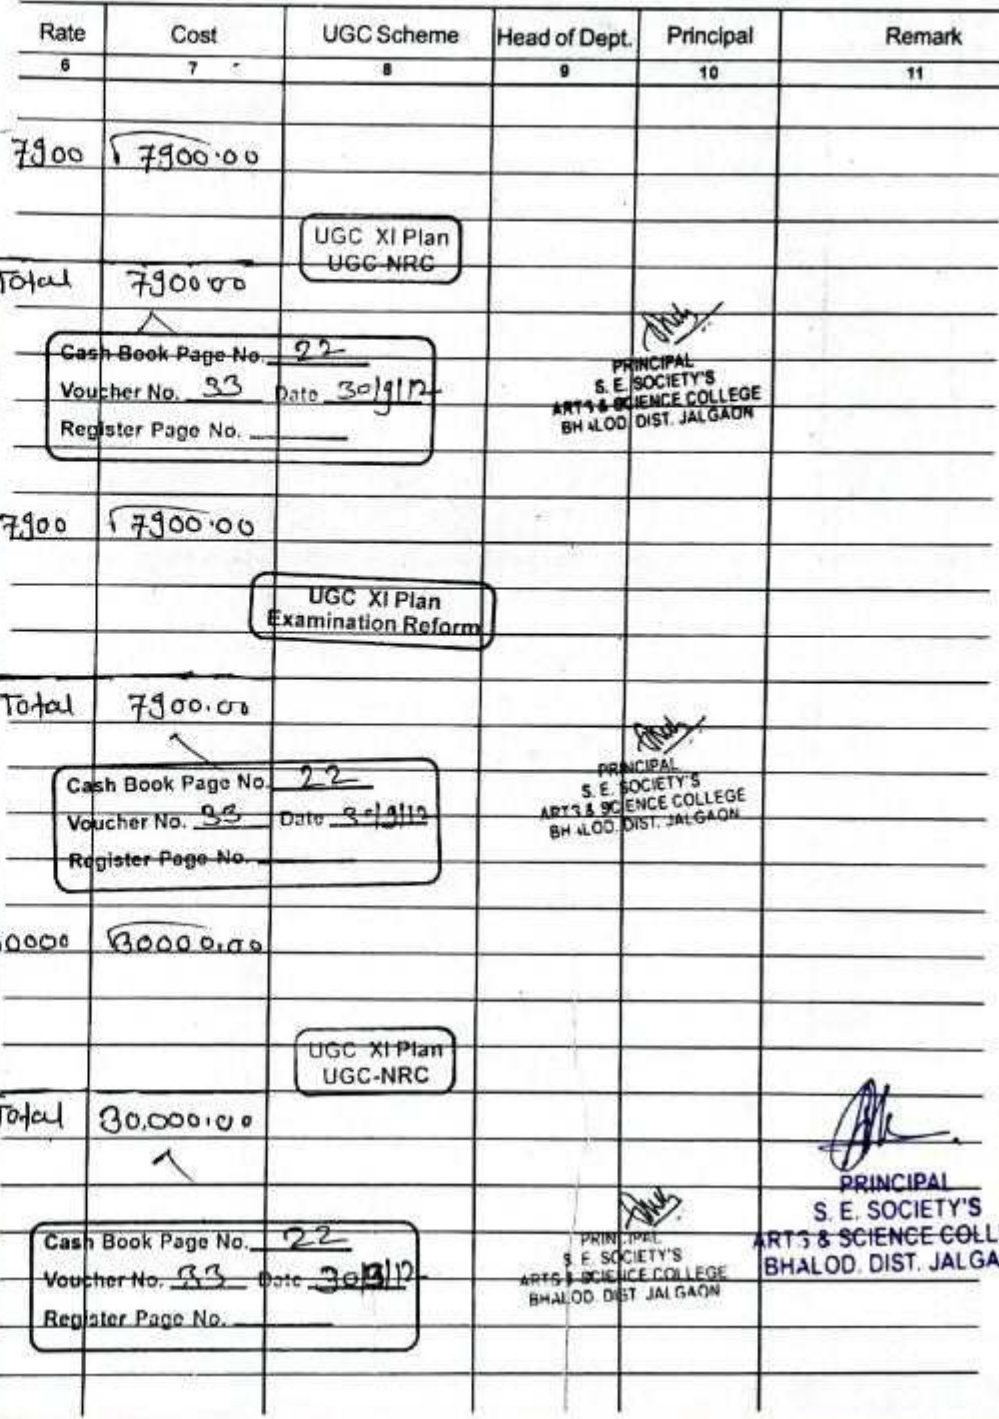 Rate Cost UGC Scheme Head of Dept. Principal Remark
6 7 8 9 10 11
7900 7900.00
UGC XI Plan
UGC-NRC
Total 7900.00
Cash Book Page No. 22
Voucher No. 33 Date 30/9/12
Register Page No.
PRINCIPAL
S. E. SOCIETY'S
ARTS & SCIENCE COLLEGE
BHALOD. DIST. JALGAON
7900 7900.00
UGC XI Plan
Examination Reform
Total 7900.00
Cash Book Page No. 22
Voucher No. 33 Date 30/9/12
Register Page No.
PRINCIPAL
S. E. SOCIETY'S
ARTS & SCIENCE COLLEGE
BHALOD. DIST. JALGAON
0000 30000.00
UGC XI Plan
UGC-NRC
Total 30,000.00
Cash Book Page No. 22
Voucher No. 33 Date 30/9/12
Register Page No.
PRINCIPAL
S. E. SOCIETY'S
ARTS & SCIENCE COLLEGE
BHALOD. DIST. JALGAON
PRINCIPAL
S. E. SOCIETY'S
ARTS & SCIENCE COLL
BHALOD. DIST. JALGA